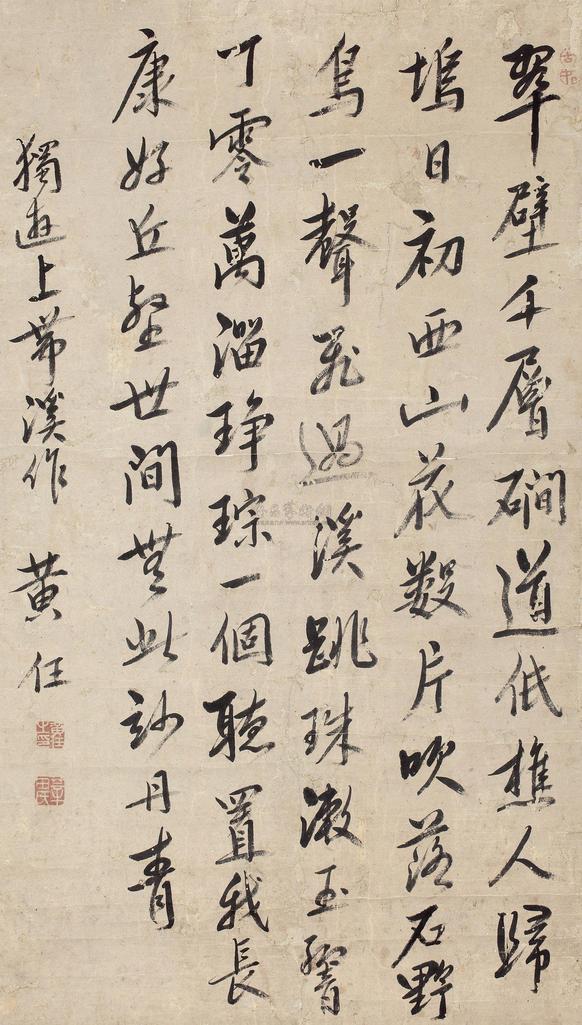 翠壁千層磵道低樵人歸
塢日初西山花數片吹落石野
鳥一聲飛過溪跳珠漱玉響
丁零萬溜琤琮一個聽置我長
康好丘壑世間無此妙丹青
獨遊上帶溪作 黃任